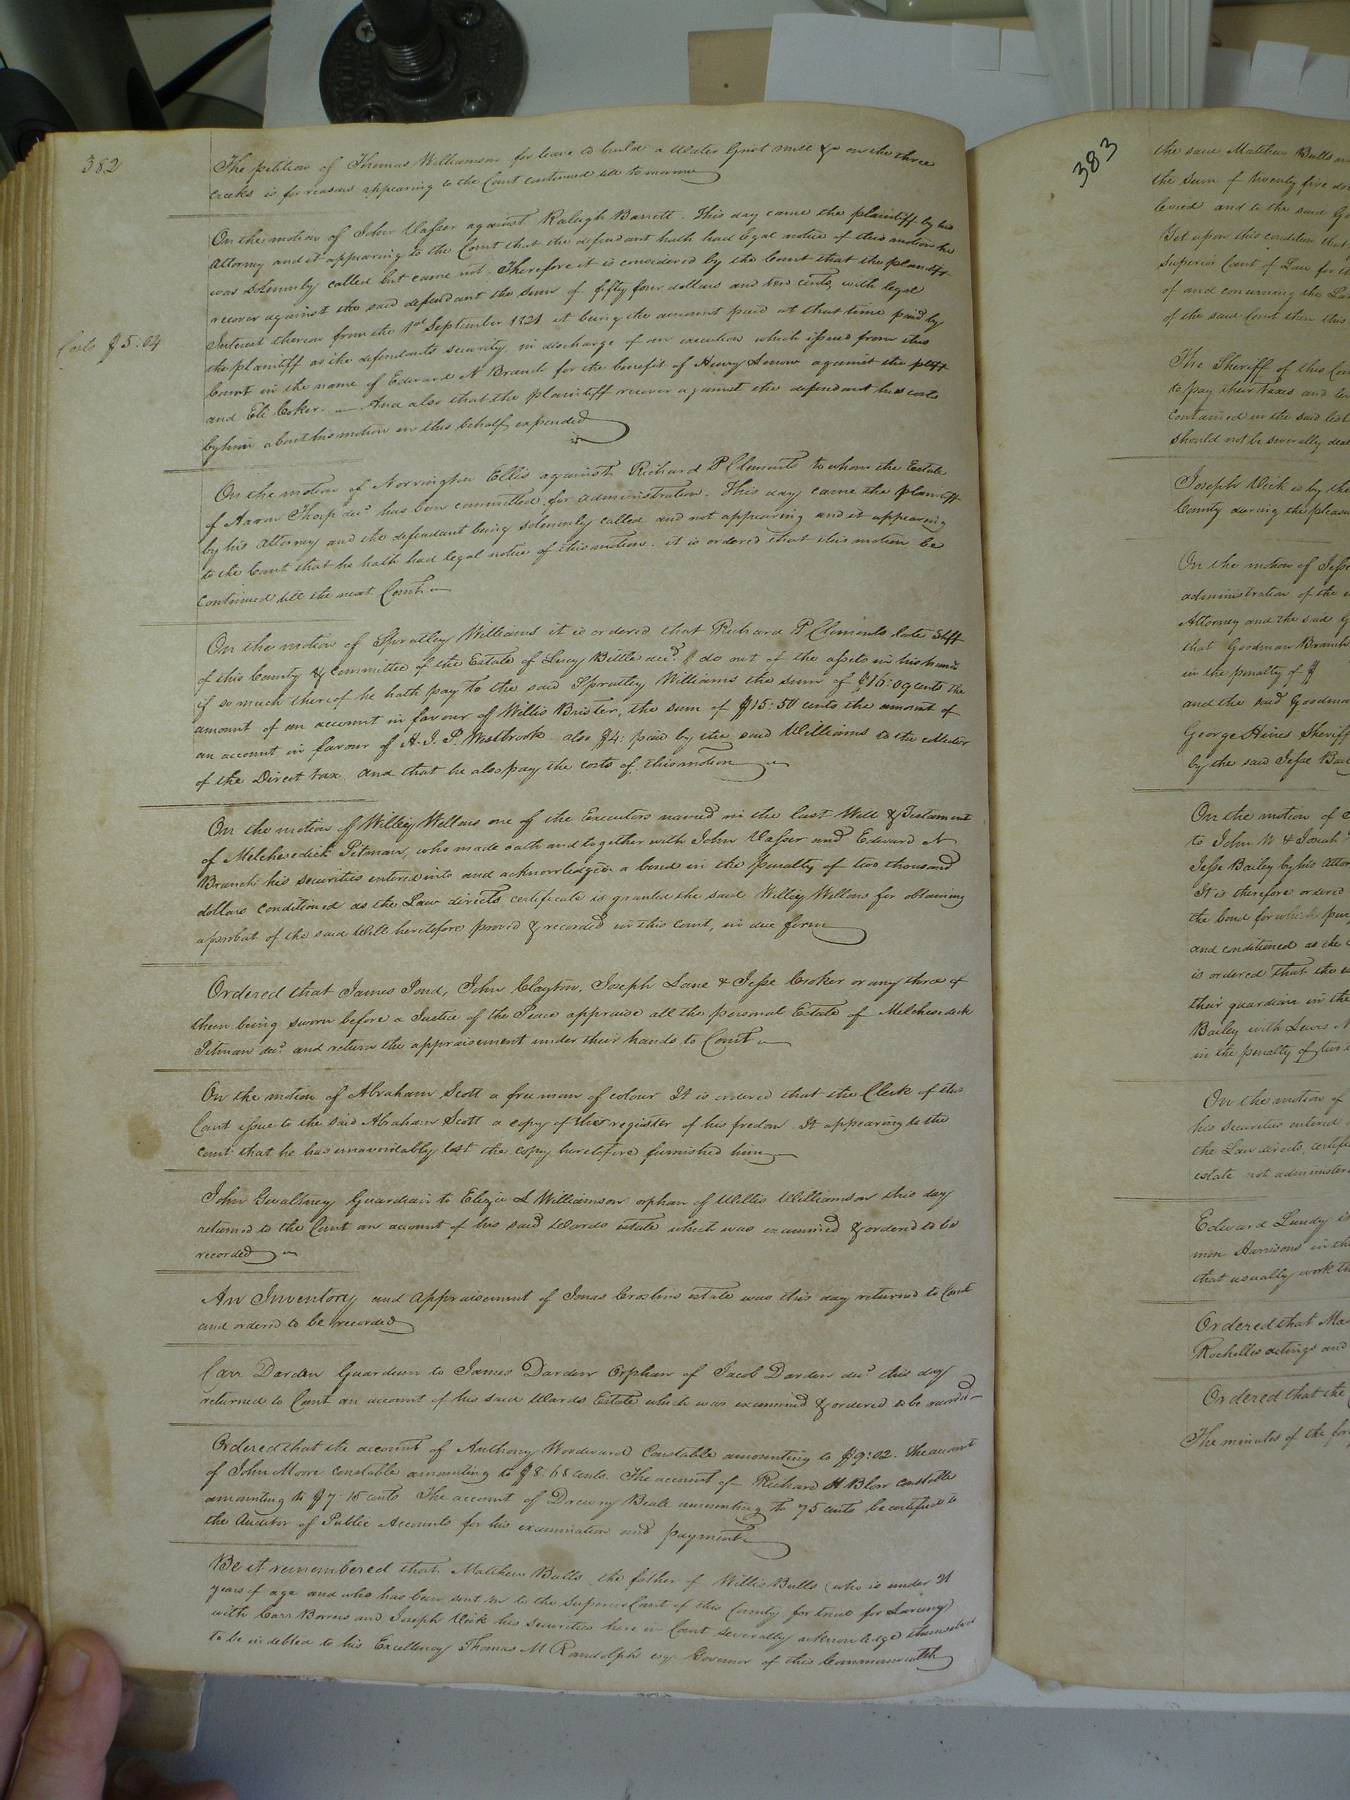 382
The petition of Thomas Williamson for leave to build a Water Grist mill &c on the three
creeks is for reasons appearing to the Court continued till tomorrow
On the motion of John Vasser against Ralugh Barrett. This day came the plaintiff by his
Attorney and it appearing to the Court that the defendant hath had legal notice of this motion he
was solemnly called but came not. Therefore it is considered by the Court that the plaintiff
recover against the said defendant the sum of fifty four dollars and two cents, with legal
Interest thereon from the 1st September 1821 it being the amount paid at that time paid by
Costs $5.04
the plaintiff as the defendants security, in discharge of an execution which issued from this
Court in the name of Edward N Branch for the benefit of Henry against the pltff
and Eli Coker. And also that the plaintiff recover against the defendant his costs
by him about his motion in this behalf expended
On the motion of Norrington Ellis against Richard P Clements to whom the Estate
of Aaron Thorp decd has been committed for administration. This day came the plaintiff
by his Attorney and the defendant being solemnly called and not appearing and it appearing
to the Court that he hath had legal notice of this motion. it is ordered that this motion be
continued till the next Court
On the motion of Spratley Williams it is ordered that Richard P Clements late Shff
of this County & Committee of the Estate of Lucy Bittle decd. do out of the assets in his hands
if so much thereof he hath pay to the said Spratley Williams the sum of $16:09 cents the
amount of an account in favour of Willis Brister, the sum of $15:50 cents the amount of
an account in favour of H. J. P. Westbrook also $4: paid by the said Williams to the
of the Direct tax. and that he also pay the costs of this motion
On the motion of Willey Wellons one of the Executors named in the last Will & Testament
of Melchesedick Pitman, who made oath and together with John Vasser and Edward N
Branch his securities entered into and acknowledged a bond in the penalty of two thousand
dollars conditioned as the Law directs certificate is granted the said Willey Wellons for obtaining
a probat of the said Will heretofore proved & recorded in this Court, in due form
Ordered that James Pond, John Clayton, Joseph Lane & Jesse Croker or any three of
them being sworn before a Justice of the Peace appraise all the personal Estate of Melchesedick
Pitman decd. and return the appraisement under their hands to Court
On the motion of Abraham Scott a free man of colour It is ordered that the Clerk of this
Court issue to the said Abraham Scott a copy of the register of his fredom. It appearing to the
court that he has unavoidably lost the copy heretofore furnished him
John Gwaltney Guardian to Eliza L Williamson orphan of Willis Williamson this day
returned to the Court an account of his said Wards estate which was examined & ordered to be
recorded
An Inventory and Appraisement of Jonas Crosbins estate was this day returned to Court
and ordered to be recorded
Carr Darden Guardian to James Darden Orphan of Jacob Darden decd this day
returned to Court an account of his said Wards Estate which was examined & ordered to be recorded
Ordered that the account of Anthony Woodward Constable amounting to $9:02. The account
of John Moore constable amounting to $8:68 cents. The account of Richard H Blow constable
amounting to $7:15 cents The account of Drewry Beale amounting to 75 cents be certified to
the Auditor of Public Accounts for his examination and payment
Be it remembered that Matthew Bulls the father of Willis Bulls (who is under 21
years of age and who has been sent on to the Superior Court of this County for trial for Larceny)
with Carr Bowers and Joseph Vick his securities here in Court severally acknowledge themselves
to be indebted to his Excellency Thomas M Randolph esq Governor of this Commonwealth
383
the same Matthew Bulls
the sum of twenty five
levied and to the said
Yet upon this condition that
Superior Court of Law for
of and concerning the
of the said Court then this
The Sheriff of this
to pay their taxes and
contained in the said list
should not be severally
Joseph Vick is by the
County during the pleasure
On the motion of Jesse
administration of the
Attorney and the said
that Goodman Branch
in the penalty of $
and the said Goodman
George Hines Sheriff
by the said Jesse
On the motion of
to John W & Josiah
Jesse Bailey by his
It is therefore ordered
the bond for which
and conditioned as the
is ordered that the
their guardian in the
Bailey with Lewis
in the penalty of two
On the motion of
his securities entered
the Law directs,
estate not
Edward Lundy is
men Harrisons in the
that usually work
Ordered that
Rochelles and
Ordered that the
The minutes of the